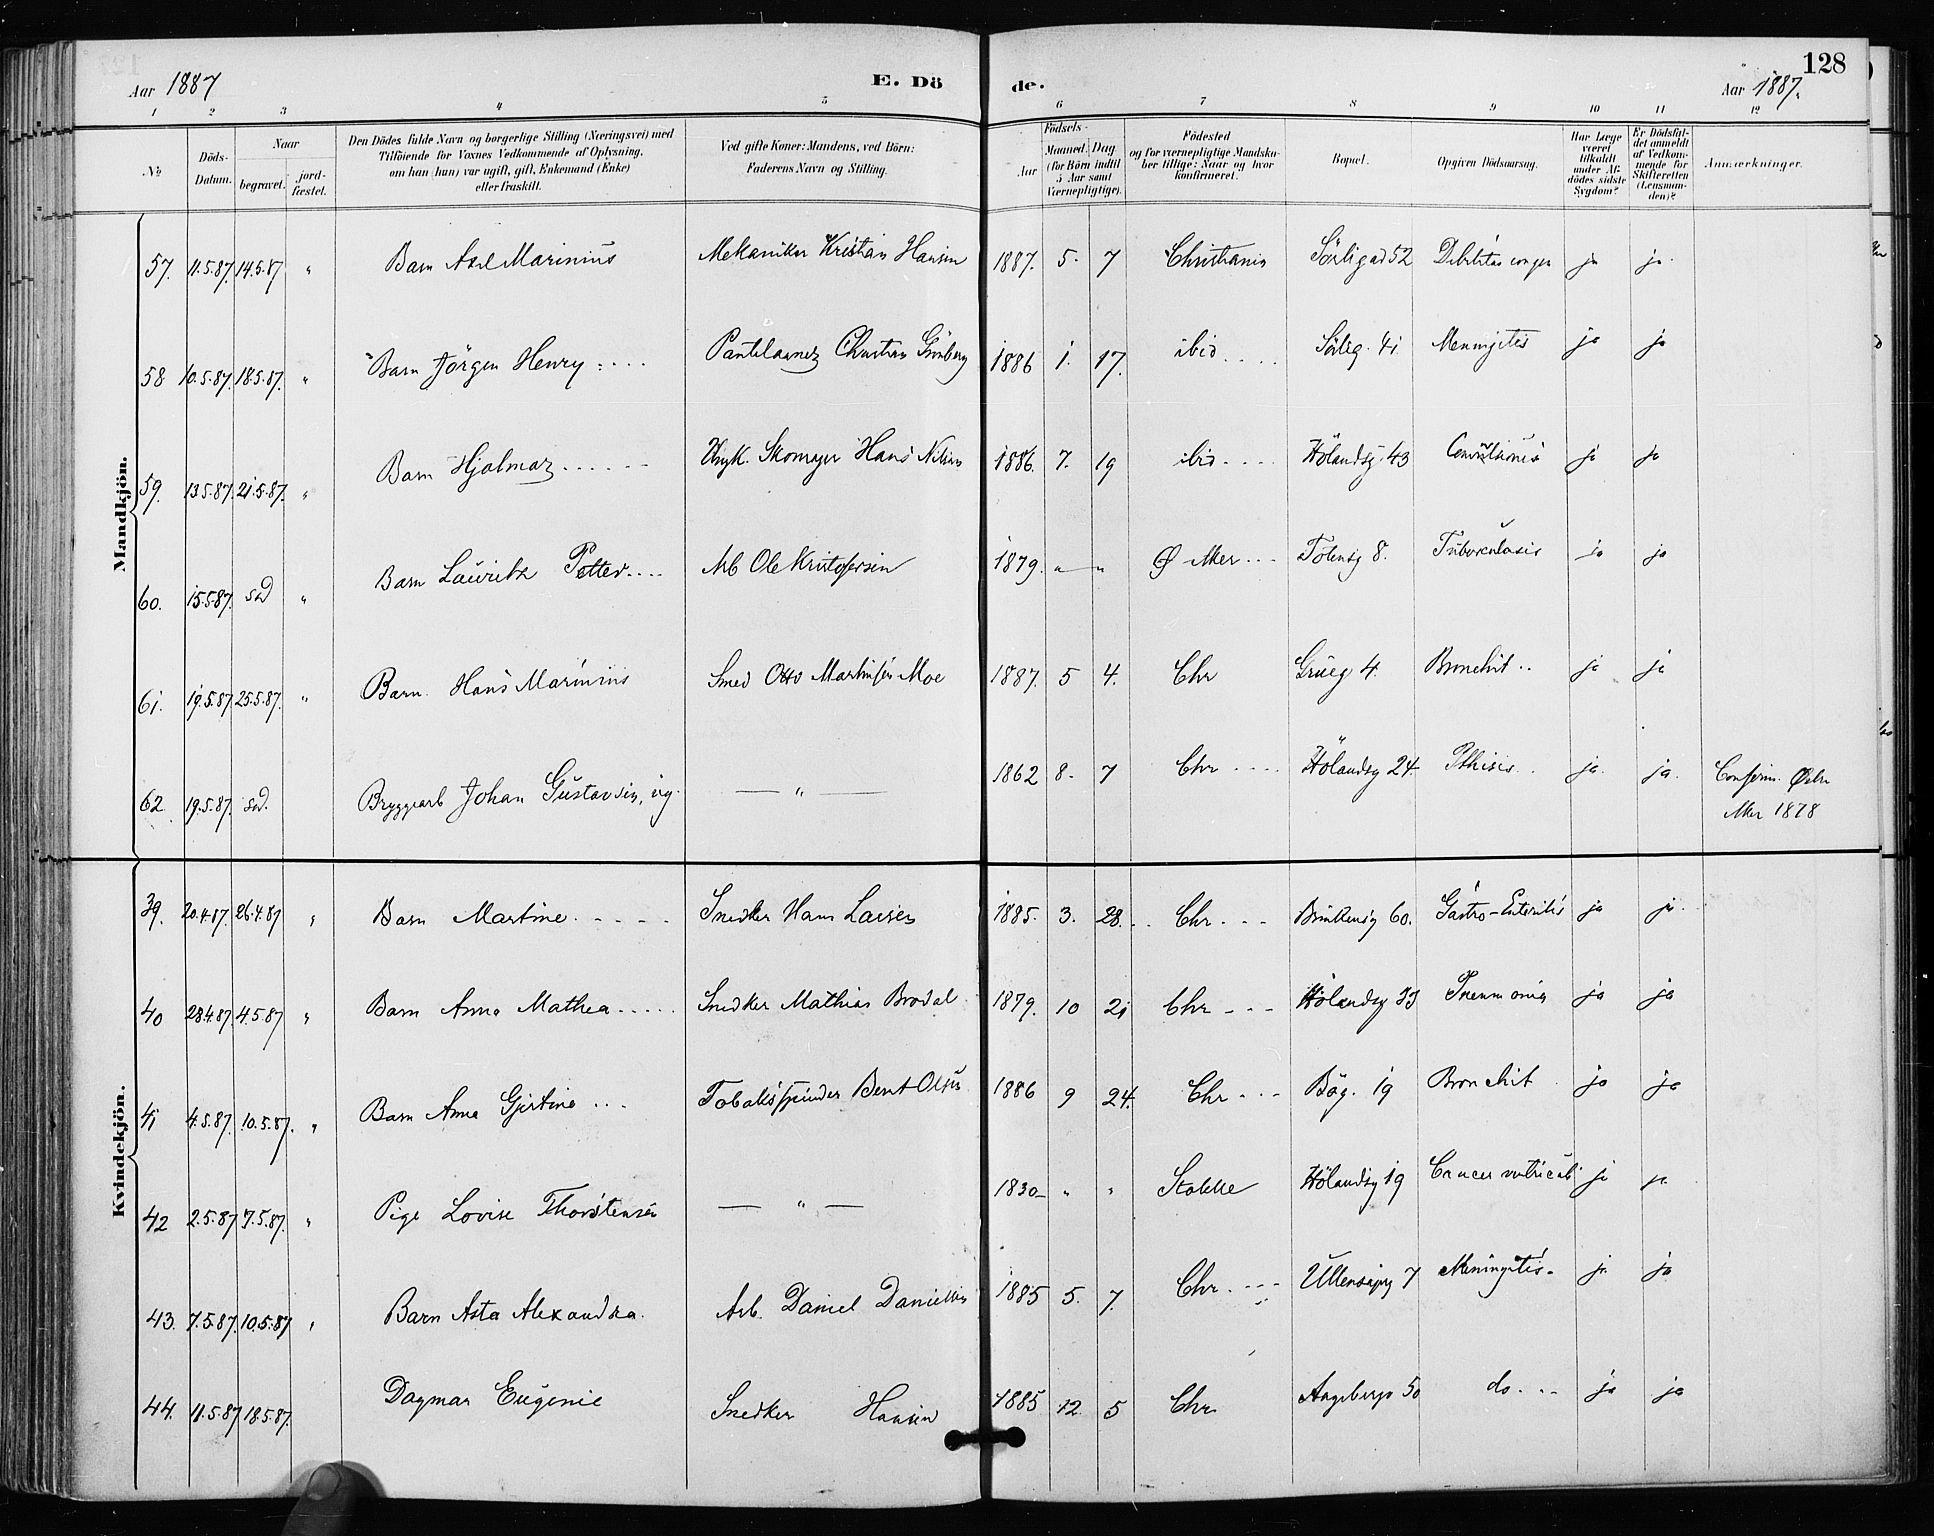 128
Aar 1887
E. Dö
de.
Aar 1887.
1 2 3 4 5 6 7 8 9 10 11 12
№
Döds-
Datum.
Naar
begravet.
jord-
fæstet.
Den Dödes fulde Navn og borgerlige Stilling (Næringsvei) med
Tilföiende for Voxnes Vedkommende af Oplysning,
om han (hun) var ugift, gift, Enkemand (Enke)
eller fraskilt.
Ved gifte Koner: Mandens, ved Börn:
Faderens Navn og Stilling.
Födsels-
Aar
Maaned. Dag
(for Börn indtil
5 Aar samt
Værnepligtige).
Födested
og for værnepligtige Mandska-
ber tillige: Naar og hvor
konfirmeret.
Bopæl.
Opgiven Dödsaarsag.
Har Læge
været
tilkaldt
under Af-
dödes sidste
Sygdom?
Er Dödsfal-
det anmeldt
af Vedkom-
mende for
Skifteretten
(Lensman-
den)?
Anmærkninger.
Mandkjön.
57. 11.5.87. 14.5.87 " Barn Axel Marinius Mekaniker Kristian Hansen 1887. 5. 7 Christiania Sörligad 52 Debilitas congen ja ja.
58 10.5.87. 18.5.87. " Barn Jörgen Henry Pantelaaner Christian Grönberg 1886 1. 17. ibid Sörlig. 41 Meningitis ja ja
59. 13.5.87. 21.5.87. " Barn Hjalmar Skomager Hans Nilsen 1886. 7. 19 ibid Hölandsg. 43 Convulsiones ja ja
60. 15.5.87. sad " Barn Lauritz Petter Arb Ole Kristofersen 1879. " " Ø Aker Totensg 8. Tuberculosis ja ja
61. 19.5.87. 25.5.87. " Barn Hans Marinius Smed Otto Martinsen Moe 1887. 5 4. Chr Grueg 4. Bronchit ja ja
62 19.5.87. sad. Bryggearb Johan Gustavsen, ug. — " — 1862 8. 7 Chr Hölandsg 24 Pthisis ja. ja. Confirm. Östre
Aker 1878
Kvindekjön.
39. 20.4.87. 26.4.87 " Barn Martine Snedker Hans Larsen 1885. 3. 28. Chr Brinkensg 60. Gastro-Enteritis ja ja.
40 28.4.87. 4.5.87 " Barn Anna Mathea Snedker Mathias Brodal 1879. 10 21 Chr Hölandsg 33 Pneumonia ja ja
41 4.5.87. 10.5.87. " Barn Anna Gjertine Tobaksspinder Bernt Olsen 1886 9 24. Chr Bög. 19 Bronchit ja ja
42 2.5.87 7.5.87. " Pige Lovise Thorstensen — " — 1830 " " Stokke Hölandsg 19 Cancer ventriculi ja ja
43. 7.5.87. 10.5.87 " Barn Asta Alexandra. Arb. Daniel Danielsen 1885 5. 7. Chr Ullensagerg 7 Meningitis. ja ja
44. 11.5.87 18.5.87. Dagmar Eugenie Snedker Hansen 1885 12 5 Chr Aagebergv 50 do. ja ja